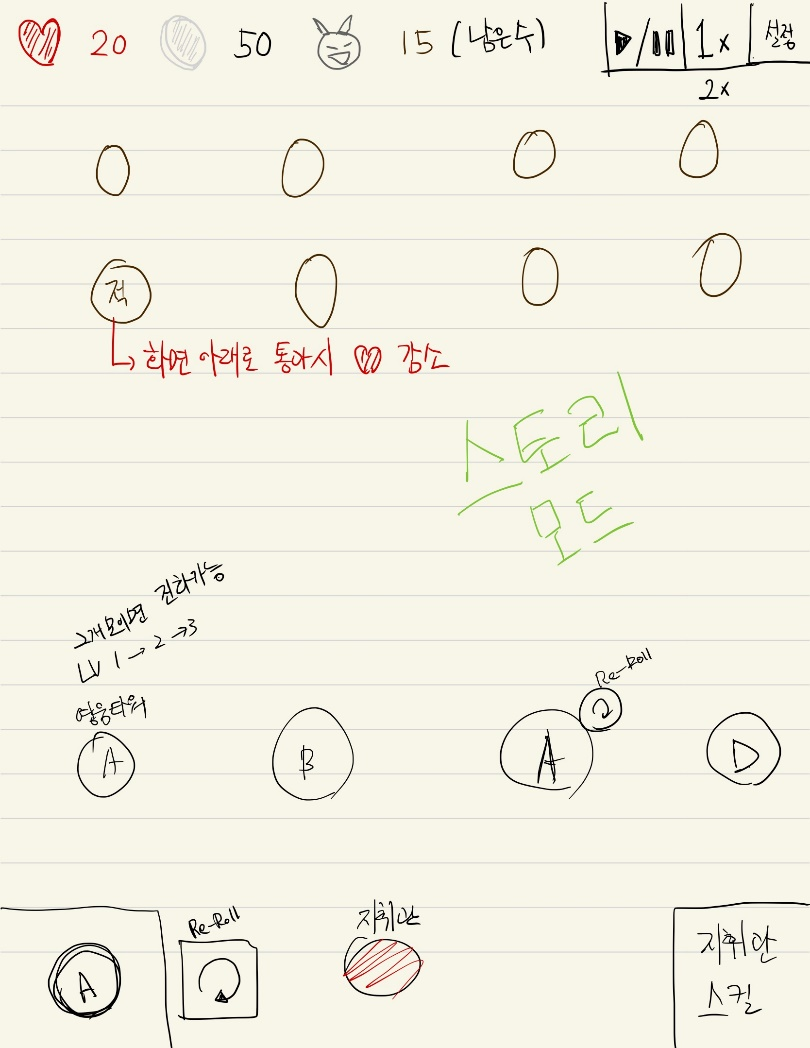 20 50 15 (남은수) ▶/❚❚ 1x 설정
2x
적
화면 아래로 통과시 ♡ 감소
스토리
모드
3개 모이면 진화가능
LV 1 → 2 → 3
영웅타워
Re-Roll
A B A D
Re-Roll
지휘관
A
지휘관
스킬